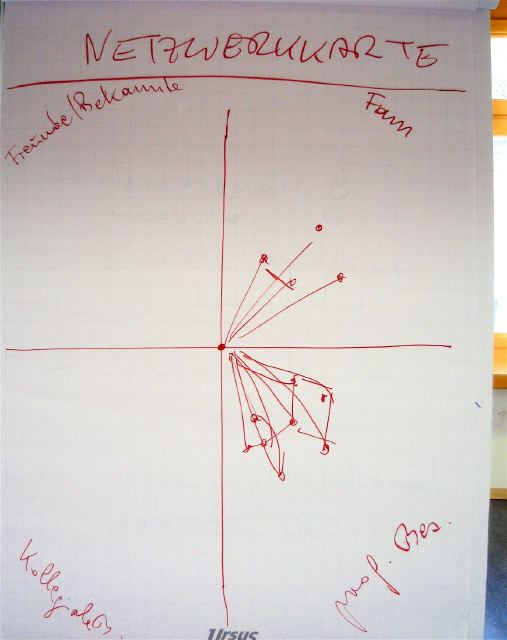 NETZWERKKARTE
Freunde/Bekannte
Fam
Kollegiale B.
prof. Bez.
Ursus